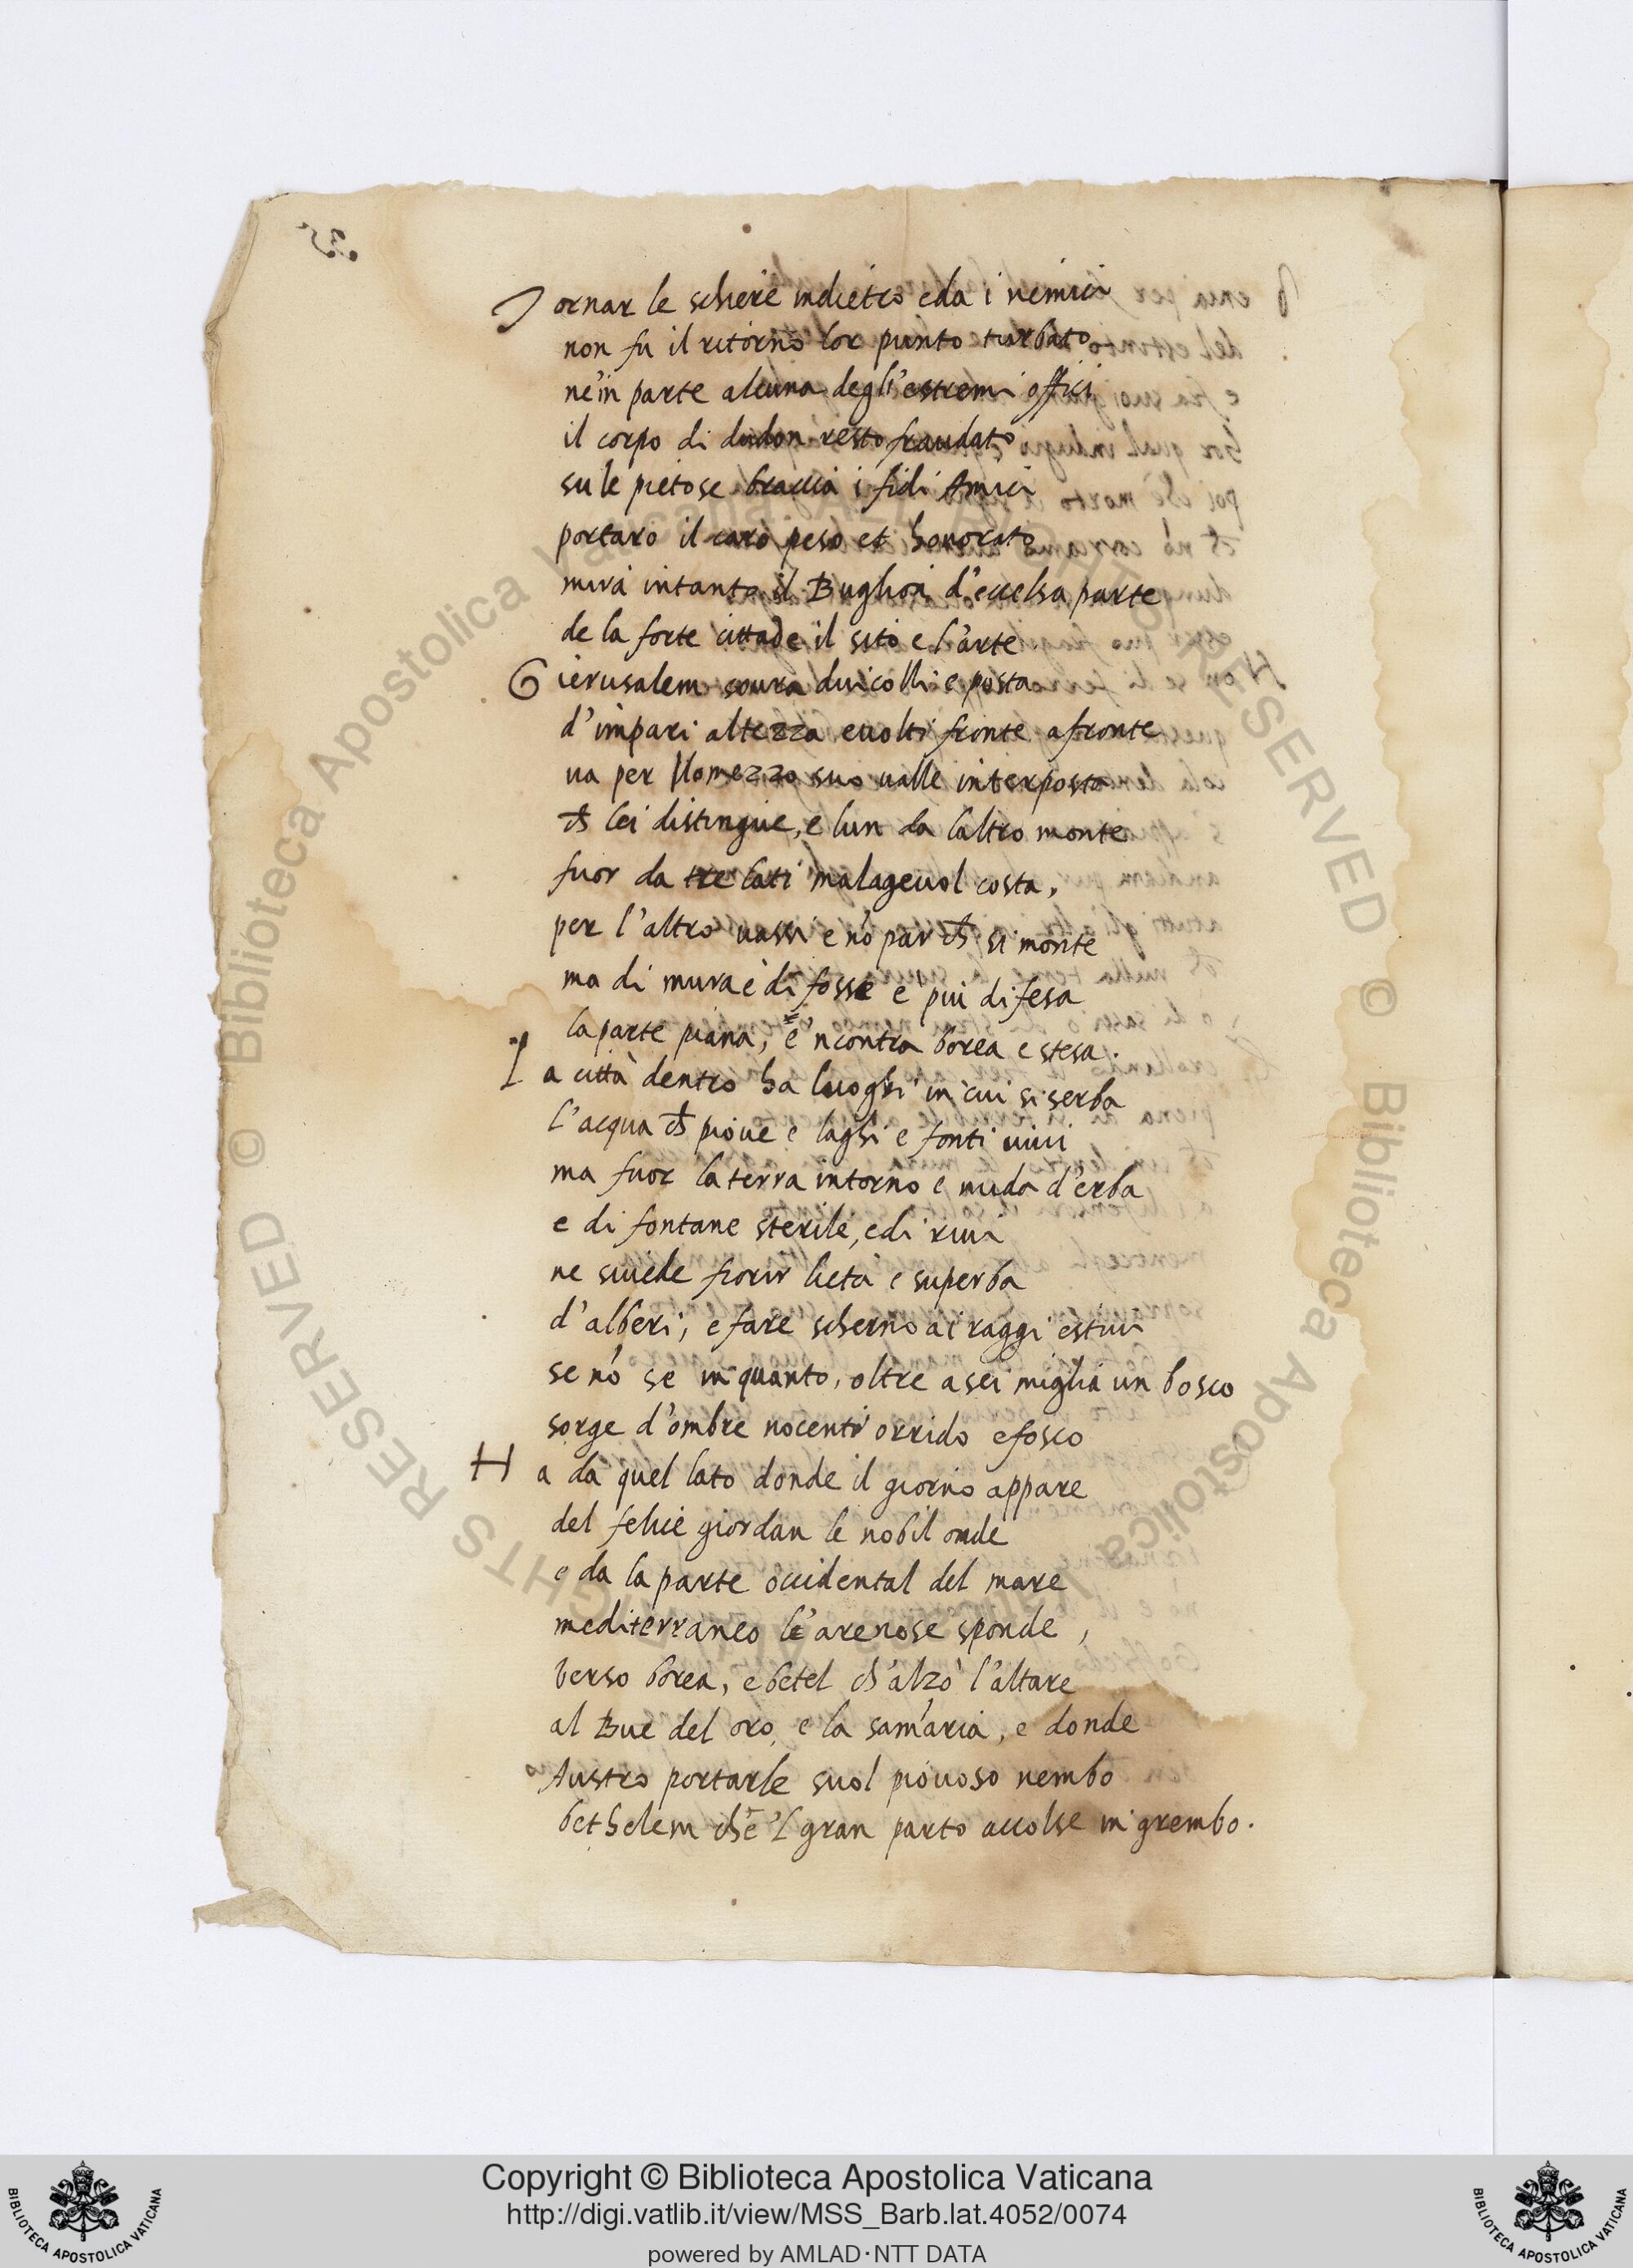 Tornar le schiere indietro eda i nemici
non fu il ritorno lor punto turbato
ne'in parte alcuna degl'estremi offici
il corpo di dudon resto fraudato
su le pietose braccia i fidi Amici
portaro il caro peso et honorato
mira intanto il Buglion d'eccelsa parte
de la forte cittade il sito e l'arte
Gierusalem soura dui colli e posta
d'impari altezza e uolti fronte a fronte
ua per lo mezzo suo ualle interposta
ch lei distingue, e lun da laltro monte
fuor da tre lati malageuol costa,
per l'altro uassi e nō par ch si monte
ma di mura e di fosse e piu difesa
la parte piana, e 'ncontra borea e stesa.
La città dentro ha luoghi in cui si serba
l'acqua ch pioue e laghi e fonti uiui
ma fuor la terra intorno e nuda d'erba
e di fontane sterile, e di riui
ne siuede fiorir lieta e superba
d'alberi, e fare scherno ai raggi estiui
se nō se in quanto, oltre a sei miglia un bosco
sorge d'ombre nocenti orrido e fosco
Ha da quel lato donde il giorno appare
del felice giordan le nobil onde
e da la parte occidental del mare
mediterraneo le arenose sponde,
verso borea, e betel ch'alzò l'altare
al Bue del oro, e la samaria, e donde
Austro portarle suol piouoso nembo
bethelem che 'l gran parto accolse in grembo.
Copyright © Biblioteca Apostolica Vaticana
http://digi.vatlib.it/view/MSS_Barb.lat.4052/0074
powered by AMLAD·NTT DATA
BIBLIOTECA APOSTOLICA VATICANA
BIBLIOTECA APOSTOLICA VATICANA